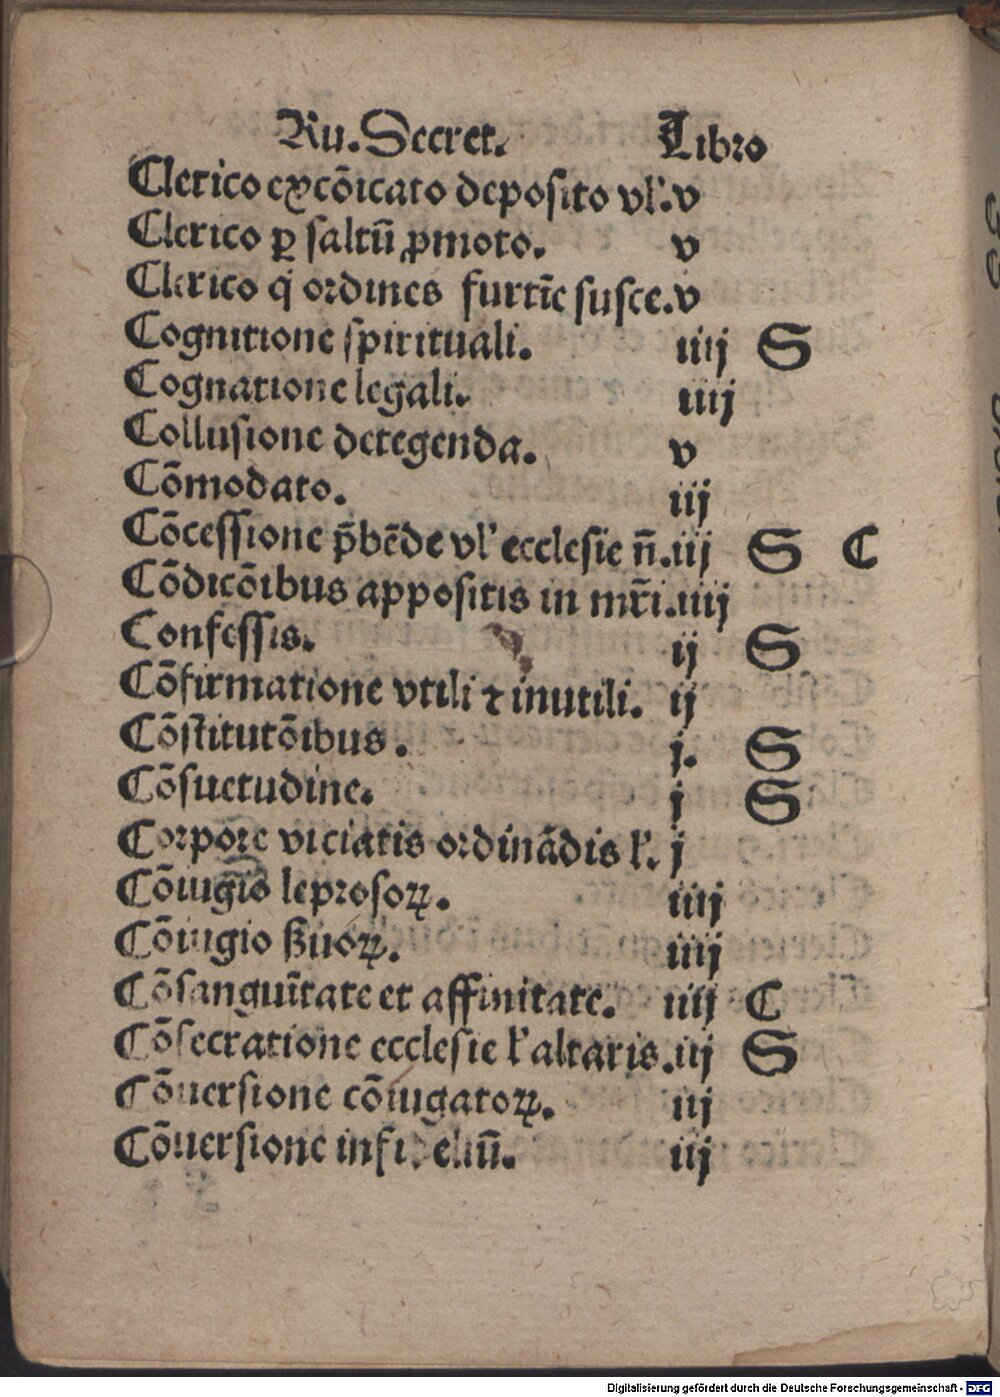 Ru.Secret. Libro
Clerico excōicato deposito vl'.v
Clerico ꝑ saltū ꝓmoto. v
Clerico q̇ ordines furtīe susce.v
Cognitione spirituali. iiij S
Cognatione legali. iiij
Collusione detegenda. v
Cōmodato. iij
Cōcessione p̄bēde vl' ecclesie n̄.iij S C
Cōdicōibus appositis in mr̄i.iiij
Confessis. ij S
Cōfirmatione vtili ⁊ inutili. ij
Cōstitutōibus. j. S
Cōsuetudine. j S
Corpore viciatis ordinādis ł'. j
Cōiugio leprosoꝝ. iiij
Cōiugio ẞuoꝝ. iiij
Cōsanguītate et affinitate. iiij C
Cōsecratione ecclesie ł' altaris.iij S
Cōuersione cōiugatoꝝ. iij
Cōuersione infideliū. iij
Digitalisierung gefördert durch die Deutsche Forschungsgemeinschaft - DFG